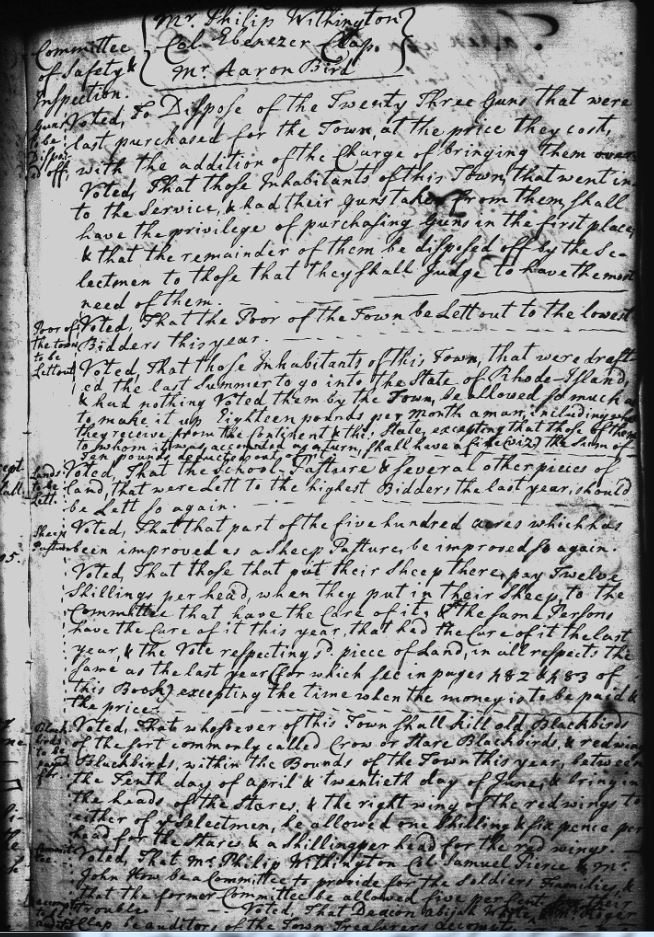 Committee of Safety & Inspection.
Mr. Philip Withington
Col. Ebenezer Clap.
Mr. Aaron Bird
Guns to be Dispos'd off.
Voted, To Dispose of the Twenty Three Guns that were
last purchased for the Town, at the price they cost,
with the addition of the Charge of bringing them over
Voted, That those Inhabitants of this Town, that went in
to the Service, & had their Guns taken from them, shall
have the privilege of purchasing Guns in the first place,
& that the remainder of them be disposed off by the Se-
lectmen to those that they shall Judge to have the most
need of them.
Poor of the town to be Lett out
Voted, That the Poor of the Town be Lett out to the lowest
Bidders this year.
Voted, That those Inhabitants of this Town, that were draft-
ed the last Summer to go into the State of Rhode-Island,
& had nothing Voted them by the Town, be allowed so much as
to make it up Eighteen pounds per Month a man, including what
they receive from the Continent & this State, excepting that those of them
to whom it was accounted as a turn, shall have a fine (viz) the Sum of
Ten pounds deducted out
Lands to be Lett.
Voted, That the School-Pasture & several other pieces of
land, that were Lett to the highest Bidders the last year, should
be Lett so again.
Sheep Pasture
Voted, That that part of the five hundred acres which has
been improved as a Sheep Pasture, be improved so again.
Voted, That those that put their Sheep there, pay Twelve
Shillings per head, when they put in their Sheep, to the
Committee that have the Care of it, & the same Persons
have the Care of it this year, that had the Care of it the last
year, & the Vote respecting sd. piece of Land, in all respects the
Same as the last year (for which see in pages 482 & 483 of
this Book) excepting the time when the money is to be paid &
the price.
Black birds to be paid for.
Voted, That whosoever of this Town shall kill old Blackbirds
of the sort commonly called Crow or Stare Blackbirds, & redwing
Blackbirds, within the Bounds of the Town this year, between
the Tenth day of April & twentieth day of June, & bring in
the heads of the Stares, & the right wing of the redwings to
either of ye Selectmen, be allowed one Shilling & six pence per
head for the Stares & a shilling per head for the red wings.
Voted, That Mr. Philip Withington Col. Samuel Pierce & Mr.
John How be a Committee to provide for the Soldiers Families, &
that the former Committee be allowed five per Cent. for their
Trouble. Voted, That Deacon Abijah White, & Mr. Roger
Clap be auditors of the Town Treasurers accompts.